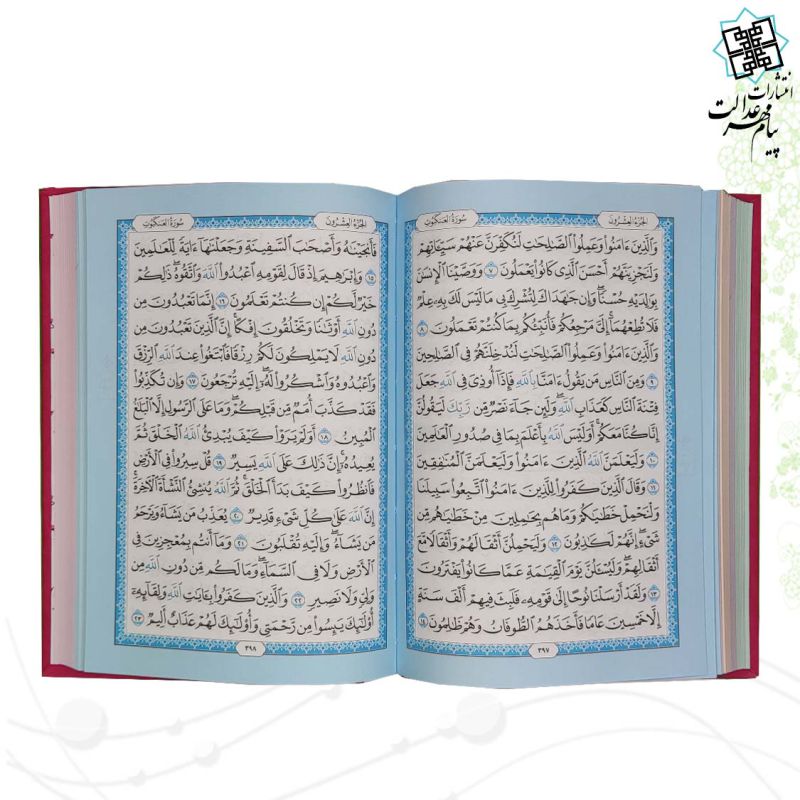 انتشارات
پیام مهر عدالت
الجزء العشرون
سورة العنكبوت
وَالَّذِينَ ءَامَنُوا وَعَمِلُوا الصَّالِحَاتِ لَنُكَفِّرَنَّ عَنْهُمْ سَيِّئَاتِهِمْ
وَلَنَجْزِيَنَّهُمْ أَحْسَنَ الَّذِي كَانُوا يَعْمَلُونَ ٧ وَوَصَّيْنَا الْإِنْسَنَ
بِوَالِدَيْهِ حُسْنًا وَإِن جَهَدَاكَ لِتُشْرِكَ بِي مَا لَيْسَ لَكَ بِهِ عِلْمٌ
فَلَا تُطِعْهُمَا إِلَيَّ مَرْجِعُكُمْ فَأُنَبِّئُكُم بِمَا كُنتُمْ تَعْمَلُونَ ٨
وَالَّذِينَ ءَامَنُوا وَعَمِلُوا الصَّالِحَاتِ لَنُدْخِلَنَّهُمْ فِي الصَّالِحِينَ
٩ وَمِنَ النَّاسِ مَن يَقُولُ ءَامَنَّا بِاللَّهِ فَإِذَا أُوذِيَ فِي اللَّهِ جَعَلَ
فِتْنَةَ النَّاسِ كَعَذَابِ اللَّهِ وَلَئِن جَاءَ نَصْرٌ مِّن رَّبِّكَ لَيَقُولُنَّ
إِنَّا كُنَّا مَعَكُمْ أَوَلَيْسَ اللَّهُ بِأَعْلَمَ بِمَا فِي صُدُورِ الْعَالَمِينَ
١٠ وَلَيَعْلَمَنَّ اللَّهُ الَّذِينَ ءَامَنُوا وَلَيَعْلَمَنَّ الْمُنَافِقِينَ
١١ وَقَالَ الَّذِينَ كَفَرُوا لِلَّذِينَ ءَامَنُوا اتَّبِعُوا سَبِيلَنَا
وَلْنَحْمِلْ خَطَايَاكُمْ وَمَا هُم بِحَامِلِينَ مِنْ خَطَايَاهُم مِّن
شَيْءٍ إِنَّهُمْ لَكَاذِبُونَ ١٢ وَلَيَحْمِلُنَّ أَثْقَالَهُمْ وَأَثْقَالًا مَّعَ
أَثْقَالِهِمْ وَلَيُسْأَلُنَّ يَوْمَ الْقِيَامَةِ عَمَّا كَانُوا يَفْتَرُونَ
١٣ وَلَقَدْ أَرْسَلْنَا نُوحًا إِلَى قَوْمِهِ فَلَبِثَ فِيهِمْ أَلْفَ سَنَةٍ
إِلَّا خَمْسِينَ عَامًا فَأَخَذَهُمُ الطُّوفَانُ وَهُمْ ظَالِمُونَ ١٤
٣٩٧
الجزء العشرون
سورة العنكبوت
فَأَنجَيْنَاهُ وَأَصْحَابَ السَّفِينَةِ وَجَعَلْنَاهَا ءَايَةً لِّلْعَالَمِينَ
١٥ وَإِبْرَاهِيمَ إِذْ قَالَ لِقَوْمِهِ اعْبُدُوا اللَّهَ وَاتَّقُوهُ ذَلِكُمْ
خَيْرٌ لَّكُمْ إِن كُنتُمْ تَعْلَمُونَ ١٦ إِنَّمَا تَعْبُدُونَ مِن
دُونِ اللَّهِ أَوْثَانًا وَتَخْلُقُونَ إِفْكًا إِنَّ الَّذِينَ تَعْبُدُونَ مِن
دُونِ اللَّهِ لَا يَمْلِكُونَ لَكُمْ رِزْقًا فَابْتَغُوا عِندَ اللَّهِ الرِّزْقَ
وَاعْبُدُوهُ وَاشْكُرُوا لَهُ إِلَيْهِ تُرْجَعُونَ ١٧ وَإِن تُكَذِّبُوا
فَقَدْ كَذَّبَ أُمَمٌ مِّن قَبْلِكُمْ وَمَا عَلَى الرَّسُولِ إِلَّا الْبَلَاغُ
الْمُبِينُ ١٨ أَوَلَمْ يَرَوْا كَيْفَ يُبْدِئُ اللَّهُ الْخَلْقَ ثُمَّ
يُعِيدُهُ إِنَّ ذَلِكَ عَلَى اللَّهِ يَسِيرٌ ١٩ قُلْ سِيرُوا فِي الْأَرْضِ
فَانظُرُوا كَيْفَ بَدَأَ الْخَلْقَ ثُمَّ اللَّهُ يُنشِئُ النَّشْأَةَ الْآخِرَةَ
إِنَّ اللَّهَ عَلَى كُلِّ شَيْءٍ قَدِيرٌ ٢٠ يُعَذِّبُ مَن يَشَاءُ وَيَرْحَمُ
مَن يَشَاءُ وَإِلَيْهِ تُقْلَبُونَ ٢١ وَمَا أَنتُم بِمُعْجِزِينَ فِي
الْأَرْضِ وَلَا فِي السَّمَاءِ وَمَا لَكُم مِّن دُونِ اللَّهِ مِن
وَلِيٍّ وَلَا نَصِيرٍ ٢٢ وَالَّذِينَ كَفَرُوا بِآيَاتِ اللَّهِ وَلِقَائِهِ
أُولَئِكَ يَئِسُوا مِن رَّحْمَتِي وَأُولَئِكَ لَهُمْ عَذَابٌ أَلِيمٌ ٢٣
٣٩٨